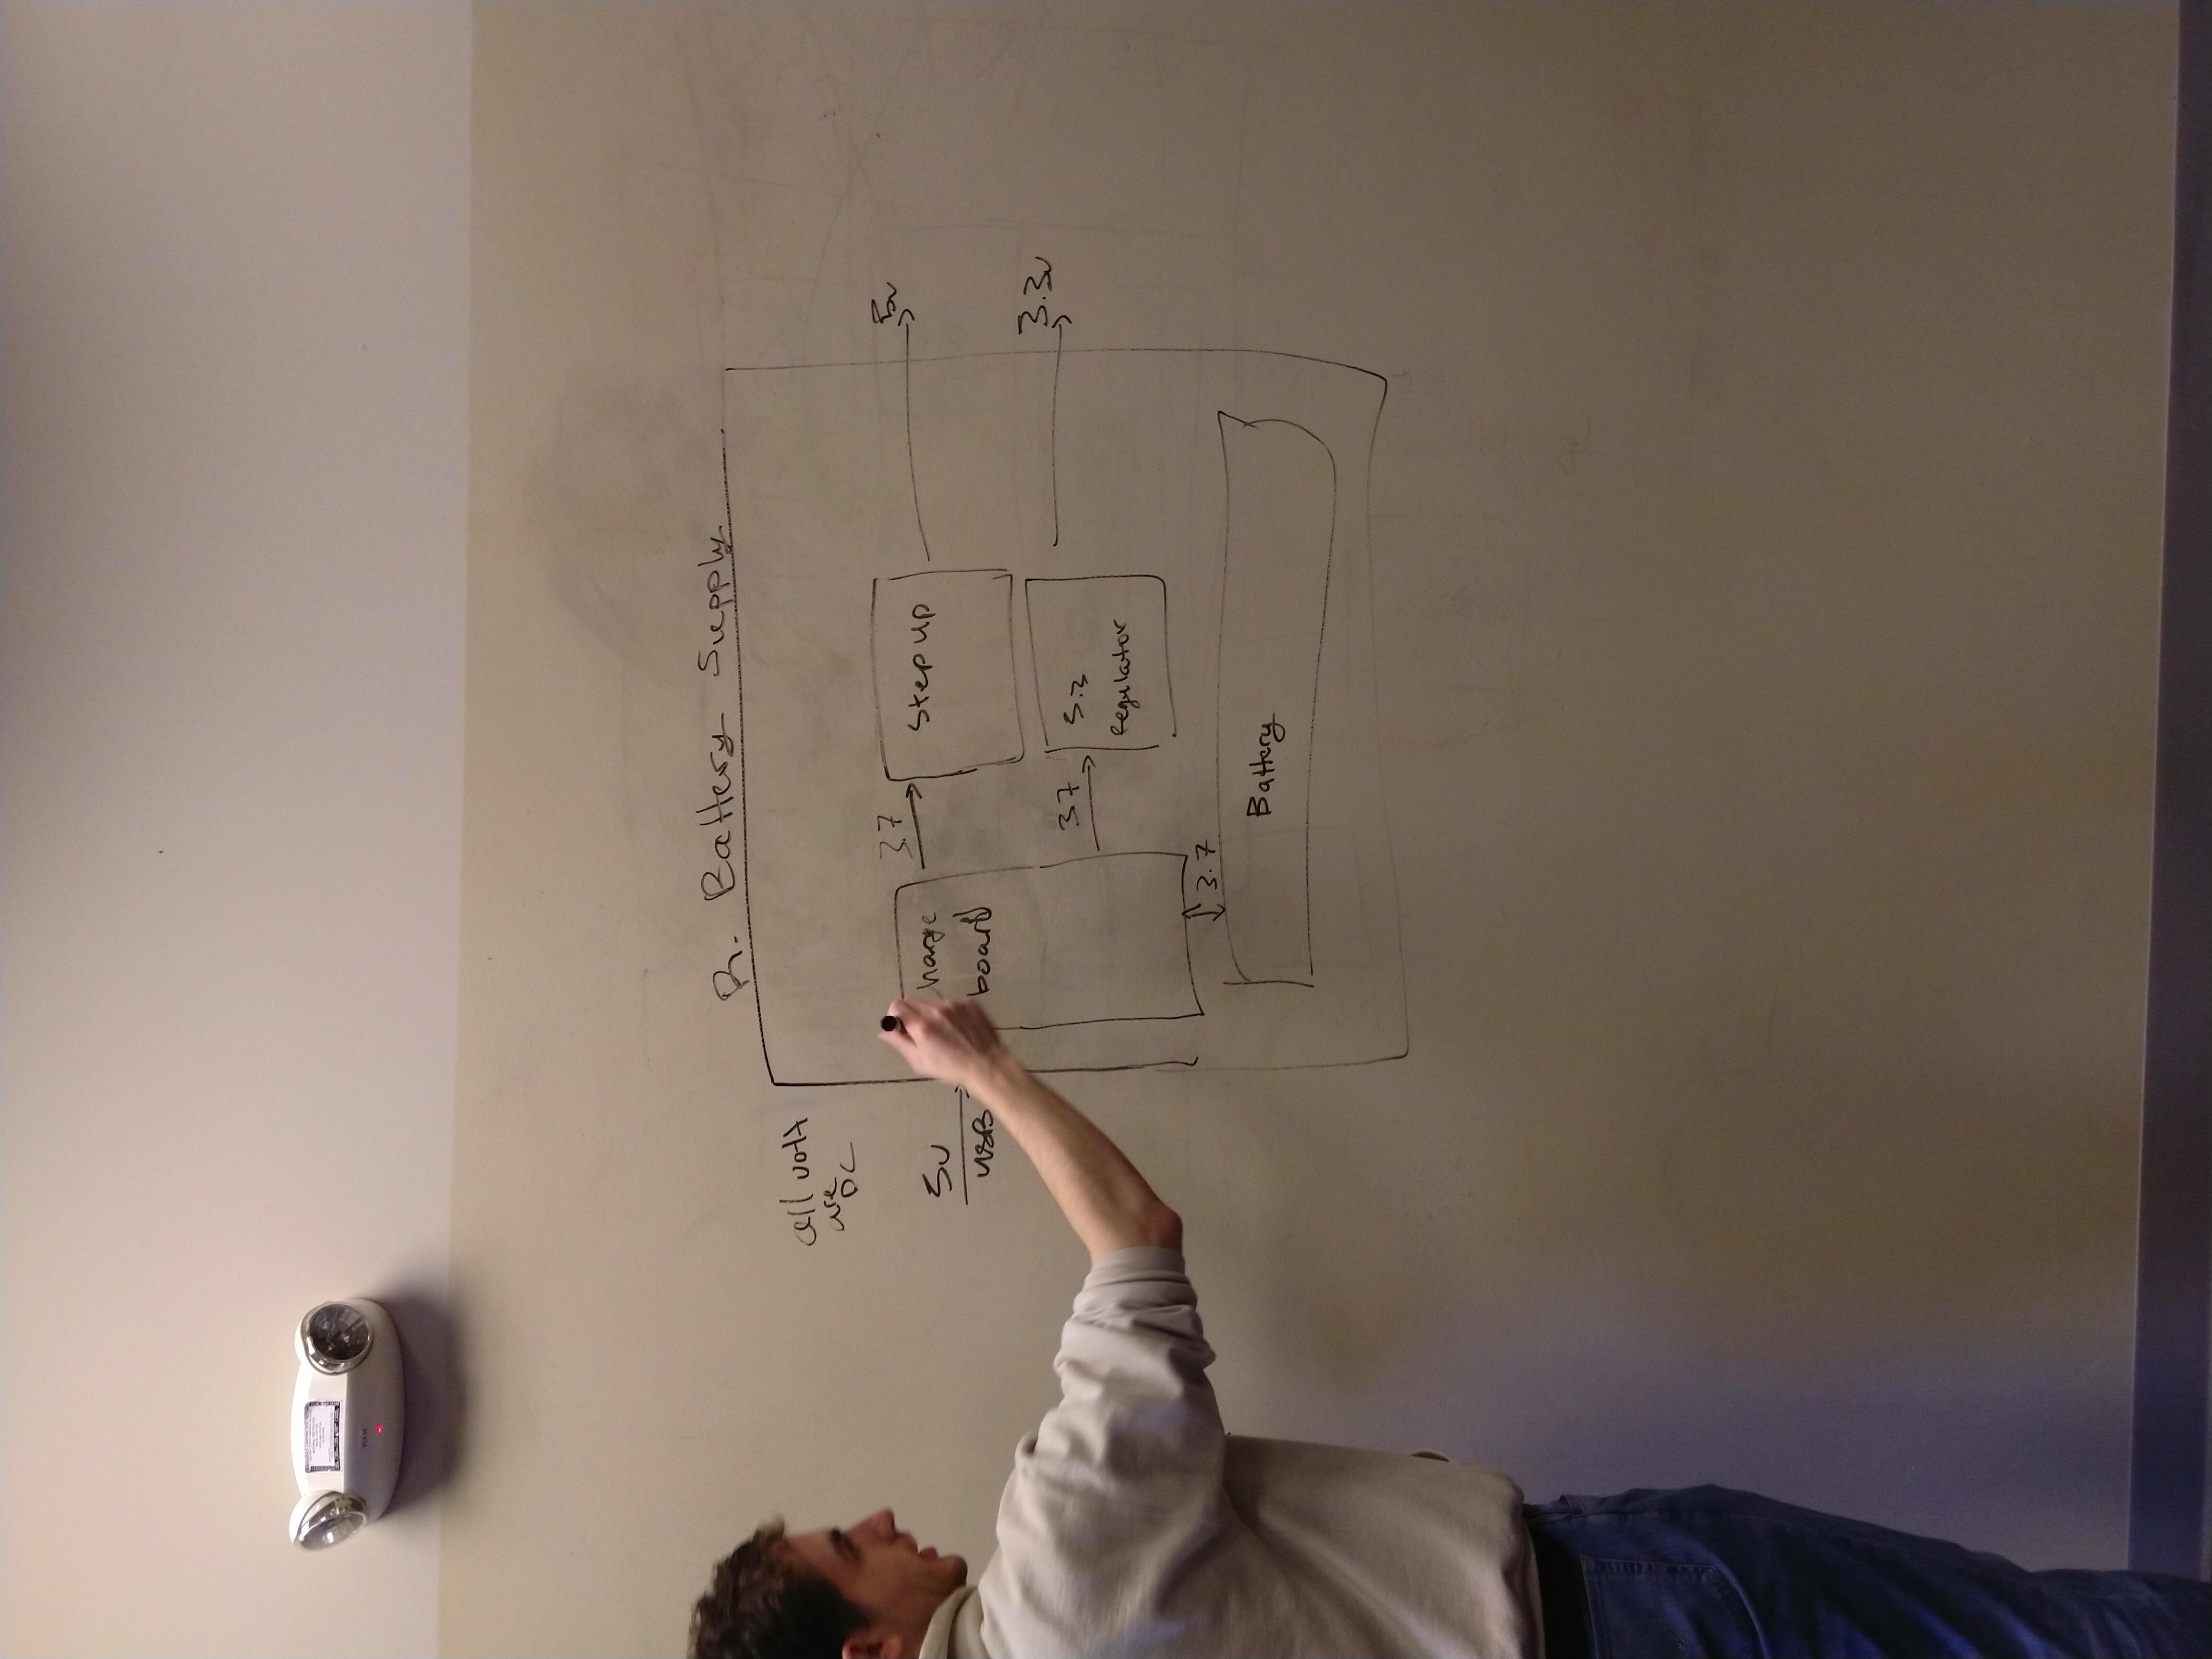 R. Battery Supply
all volt
are
DC
5v
USB
harge
board
3.7
Step up
5v
3.7
3.3
Regulator
3.3v
3.7
Battery